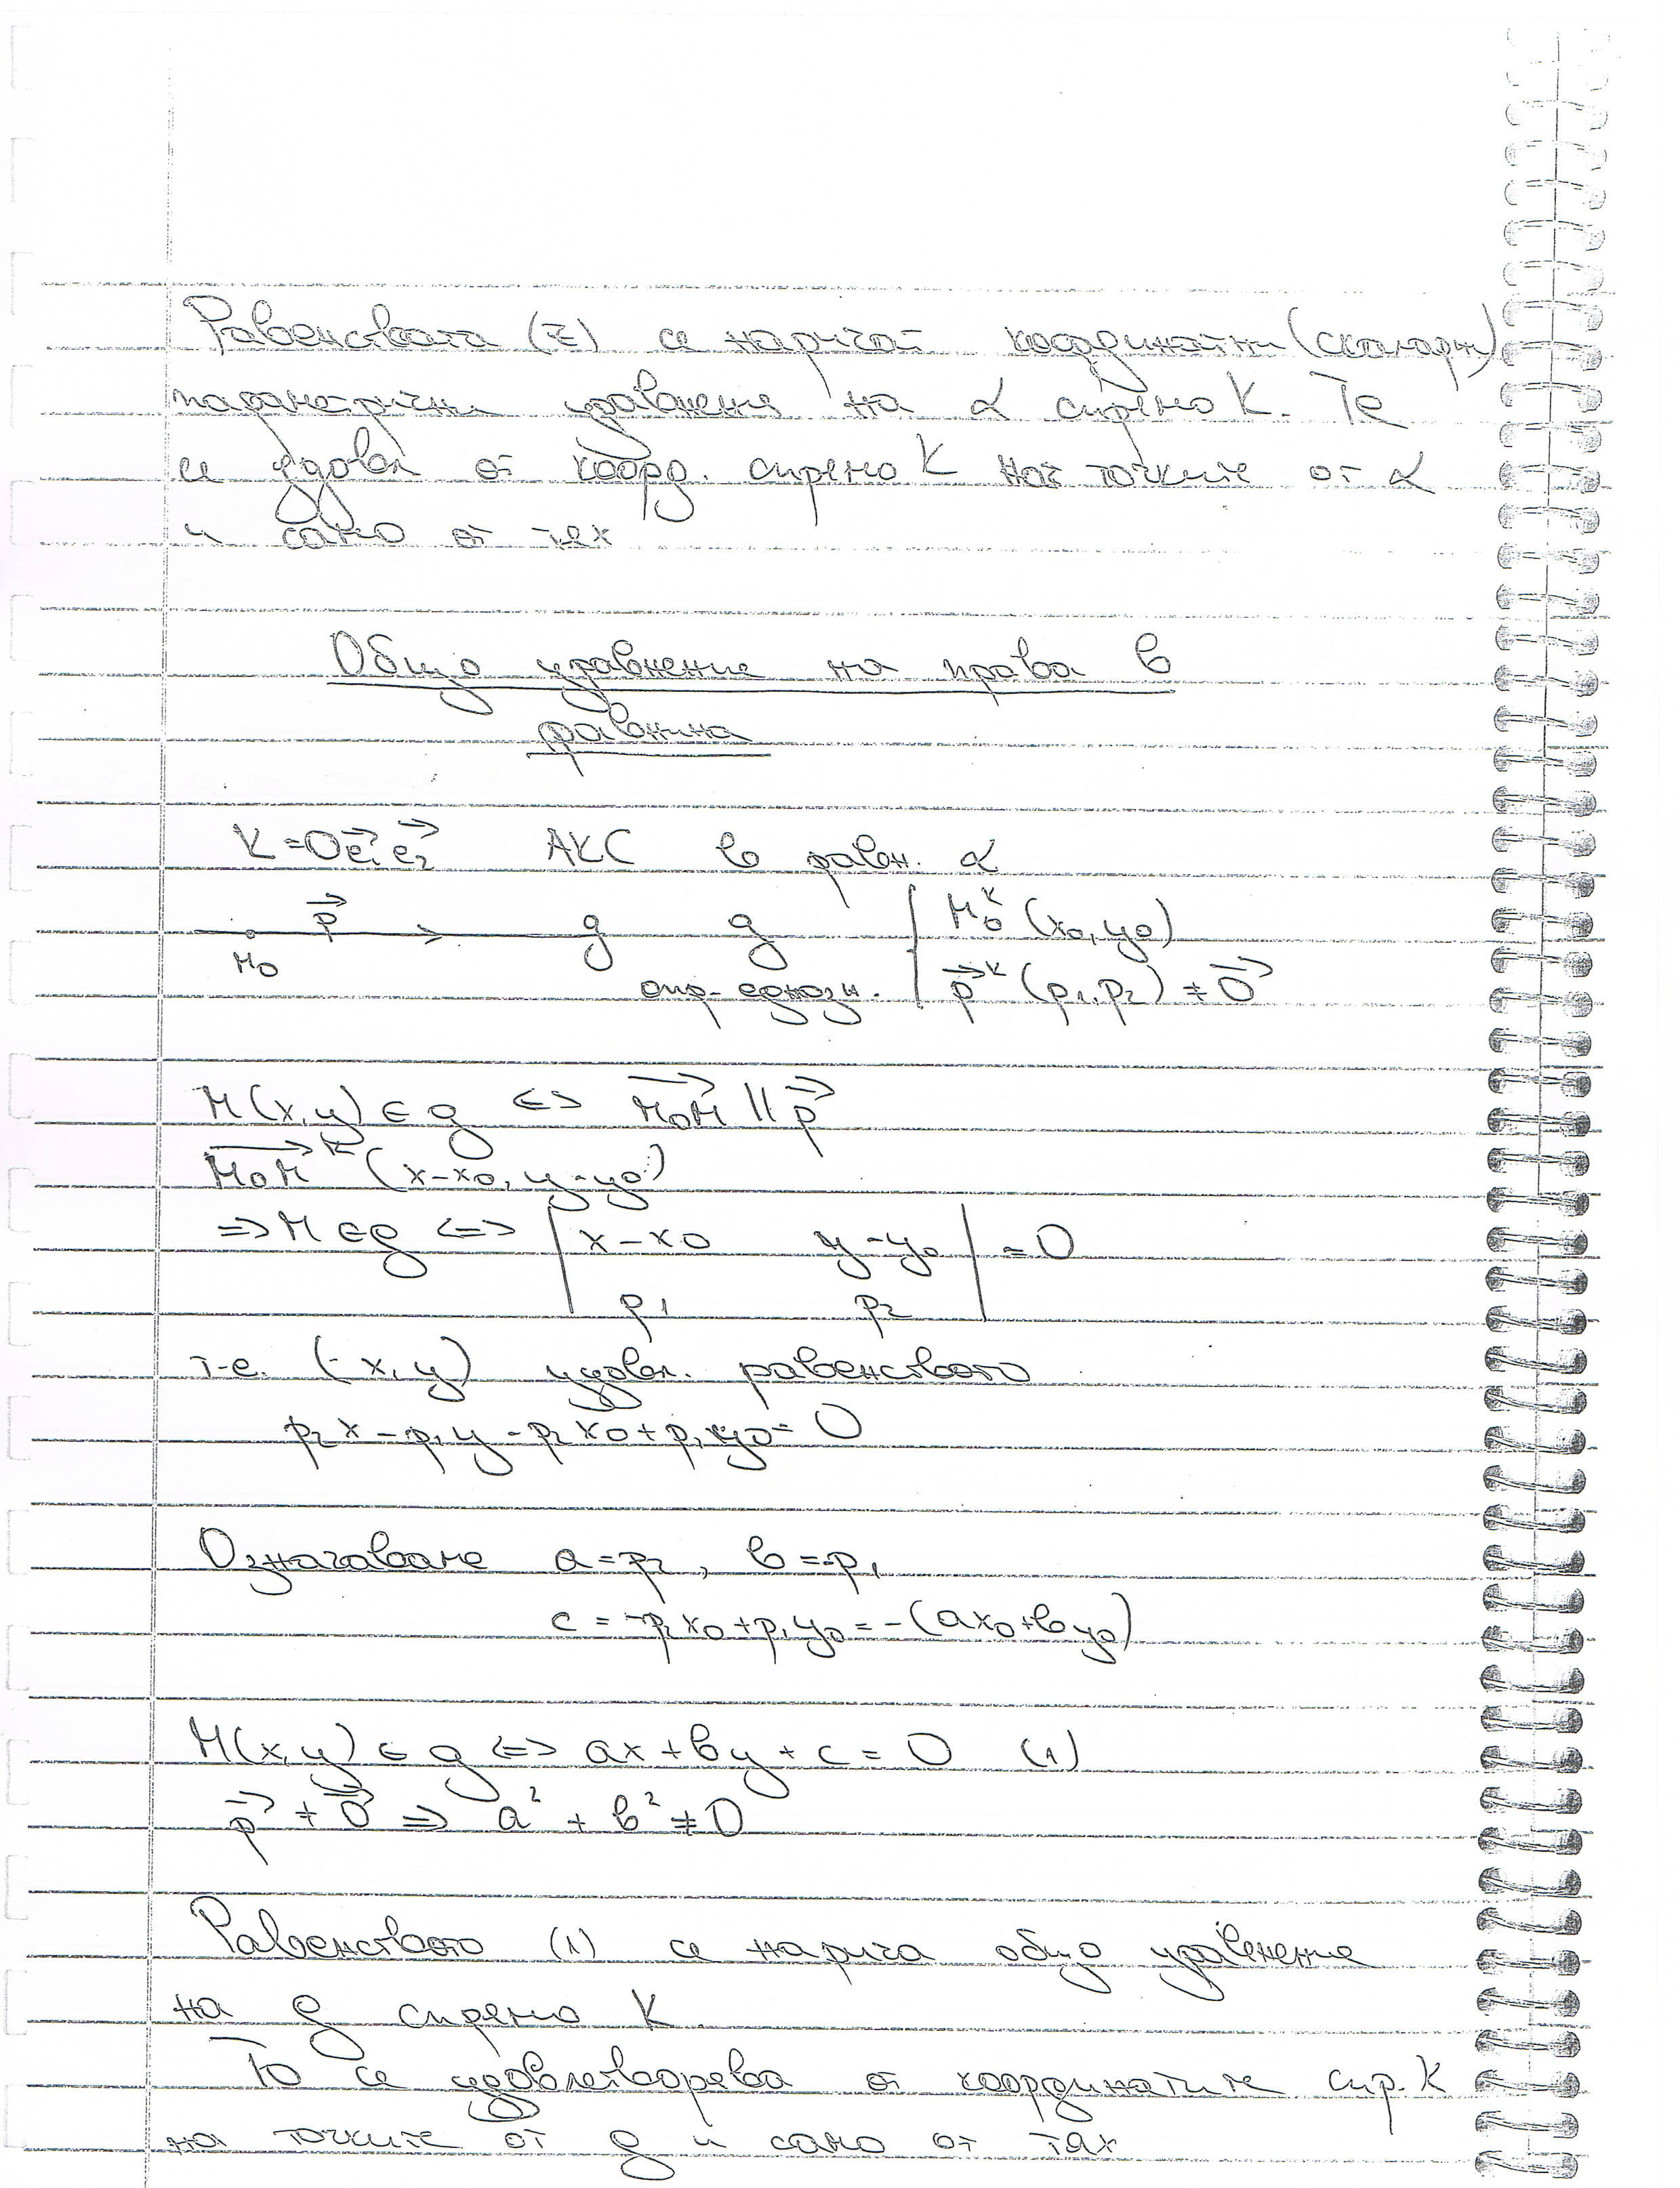 Равенствата (2) се наричат координатни (скаларни)
параметрични уравнения на α спрямо K. Те
се удовл от коорд. спрямо K на точките от α
и само от тях
Общо уравнение на права в
равнина
K=Oe₁⃗e₂⃗ АКС в равн. α
M₀ p⃗ g g опр. еднозн. | M₀ᴷ(x₀,y₀)
p⃗ᴷ(p₁,p₂) ≠ 0⃗
M(x,y) ∈ g <=> M₀M⃗ || p⃗
M₀M⃗ᴷ (x-x₀, y-y₀)
=> M ∈ g <=> | x-x₀ y-y₀ | = 0
p₁ p₂
т.е. (x,y) удовл. равенството
p₂x - p₁y - p₂x₀ + p₁y₀ = 0
Означаваме a=p₂, b=-p₁
c = -p₂x₀+p₁y₀ = -(ax₀+by₀)
M(x,y) ∈ g <=> ax+by+c=0 (1)
p⃗ ≠ 0⃗ => a² + b² ≠ 0
Равенството (1) се нарича общо уравнение
на g спрямо K.
То се удовлетворява от координатите спр. K
на точките от g и само от тях